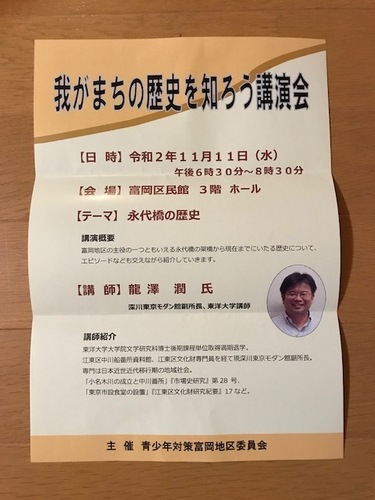 我がまちの歴史を知ろう講演会
【日 時】令和2年11月11日（水）
午後6時30分～8時30分
【会 場】富岡区民館 3階 ホール
【テーマ】永代橋の歴史
講演概要
富岡地区の主役の一つともいえる永代橋の架橋から現在までにいたる歴史について、
エピソードなども交えながら紹介していきます。
【講 師】龍澤 潤 氏
深川東京モダン館副所長、東洋大学講師
講師紹介
東洋大学大学院文学研究科博士後期課程単位取得満期退学。
江東区中川船番所資料館、江東区文化財専門員を経て現深川東京モダン館副所長。
専門は日本近世近代移行期の地域社会。
「小名木川の成立と中川番所」『市場史研究』第28号、
「東京市設食堂の設置」『江東区文化財研究紀要』17など。
主 催 青少年対策富岡地区委員会